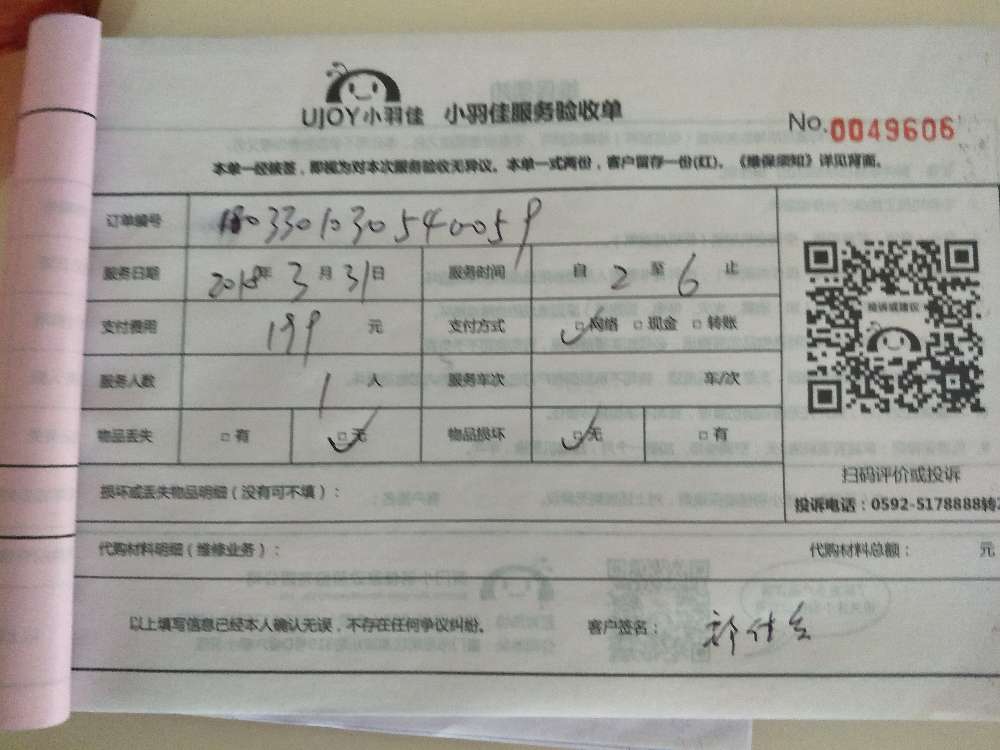 UJOY小羽佳 小羽佳服务验收单
No.0049606
本单一经被签，即视为对本次服务验收无异议。本单一式两份，客户留存一份(红)。《维保须知》详见背面。
订单编号 1803301030540059
服务日期 2018年 3月 31日 服务时间 自 2 至 6 止
支付费用 199 元 支付方式 ☑网络 □现金 □转账
服务人数 1 人 服务车次 车/次
物品丢失 □有 ☑无 物品损坏 ☑无 □有
投诉或建议
扫码评价或投诉
损坏或丢失物品明细（没有可不填）：
投诉电话：0592-5178888转
代购材料明细（维修业务）： 代购材料总额： 元
以上填写信息已经本人确认无误，不存在任何争议纠纷。 客户签名：